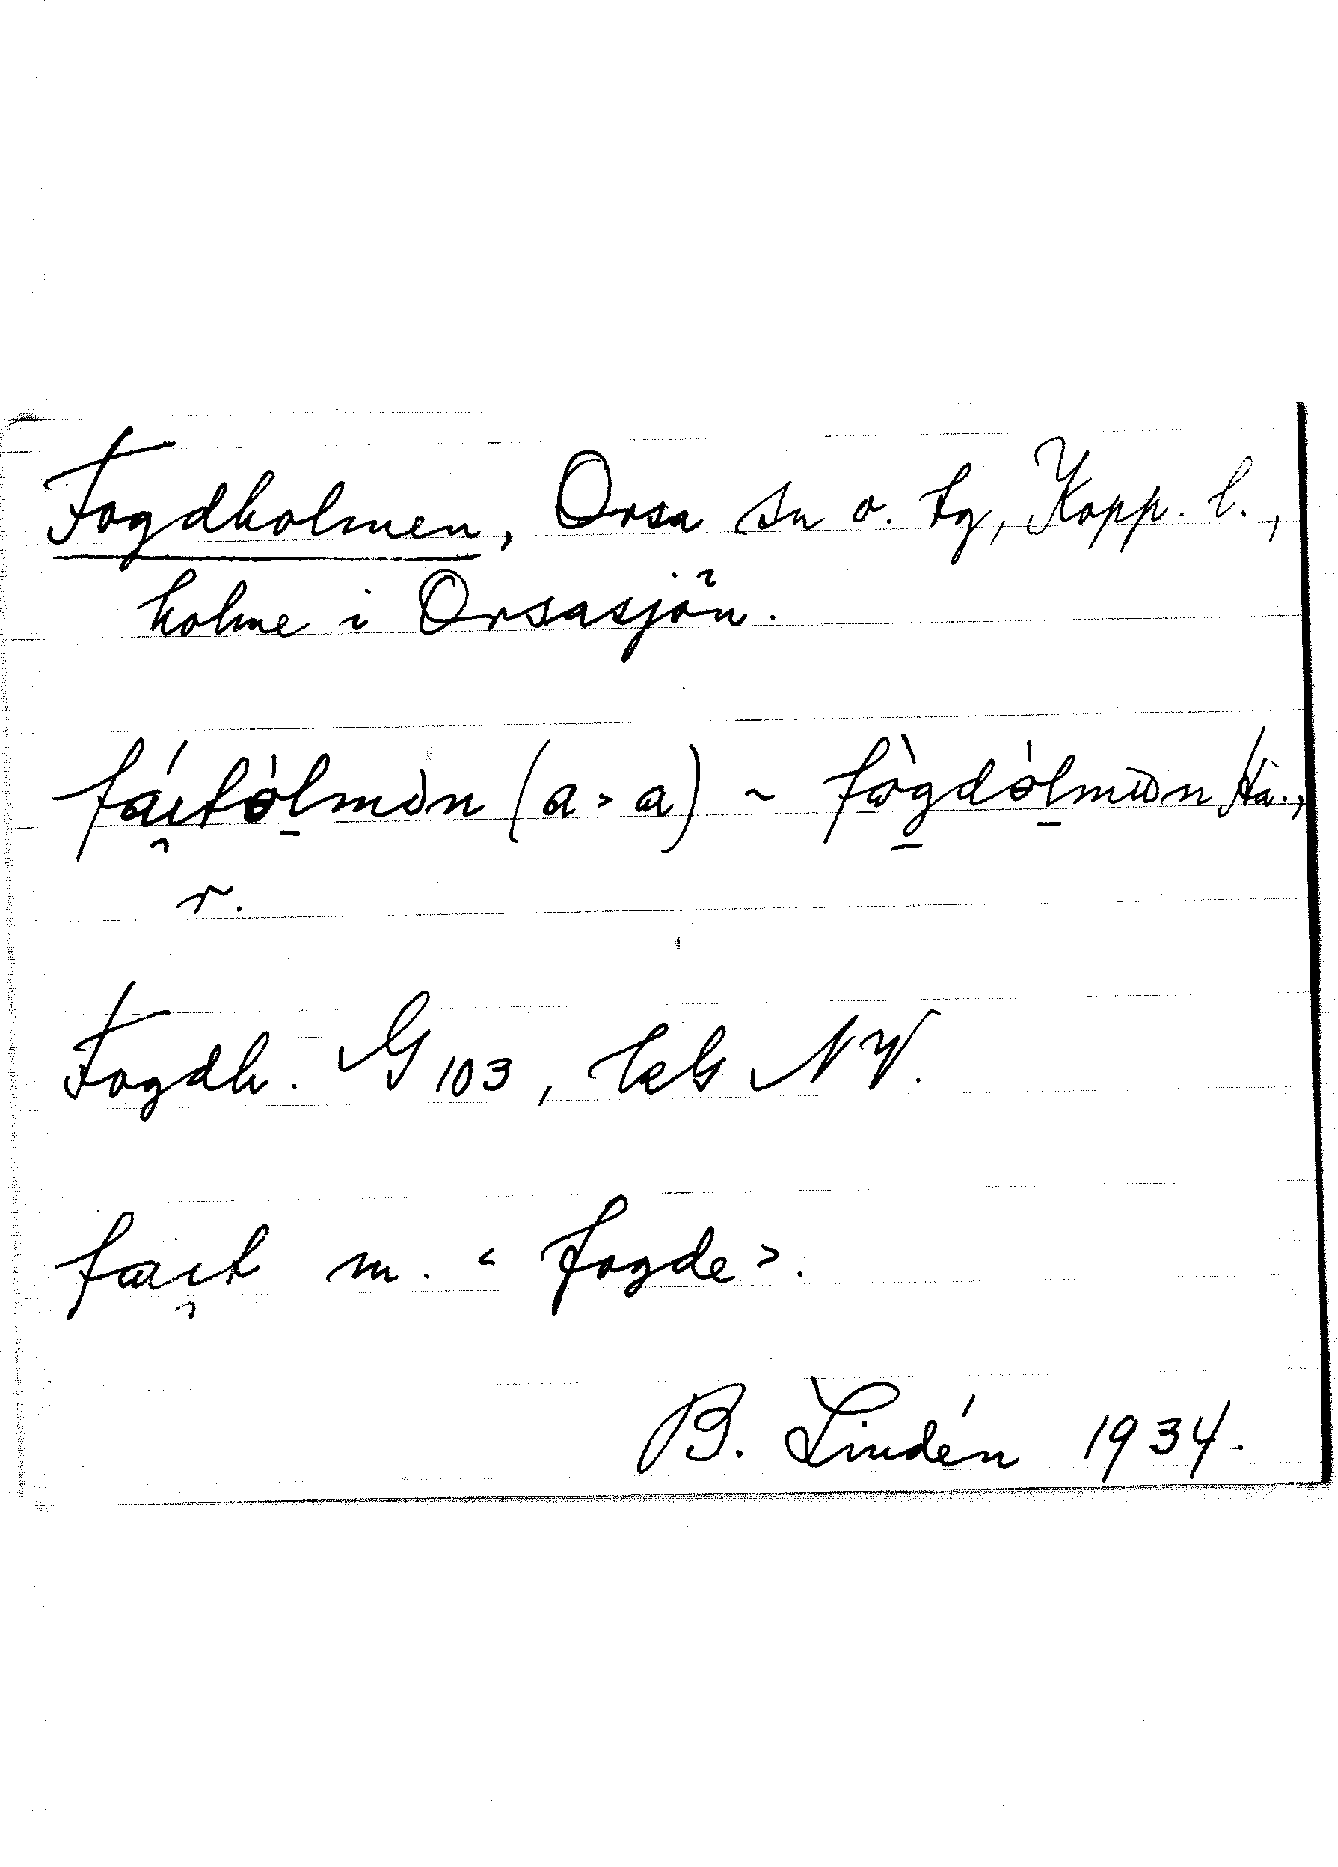 Fogdholmen, Orsa sn o. tg, Kopp. l.,
holme i Orsasjön.
fáıtólmən (a > a) ~ fògdólmən Hå.,
r.
Fogdh. G 103, NV.
faıt m. « fogde ».
B. Lindén 1934.